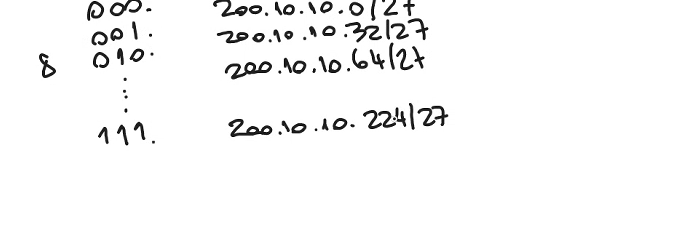 000. 200.10.10.0/27
001. 200.10.10.32/27
8 010. 200.10.10.64/27
⋮
111. 200.10.10.224/27